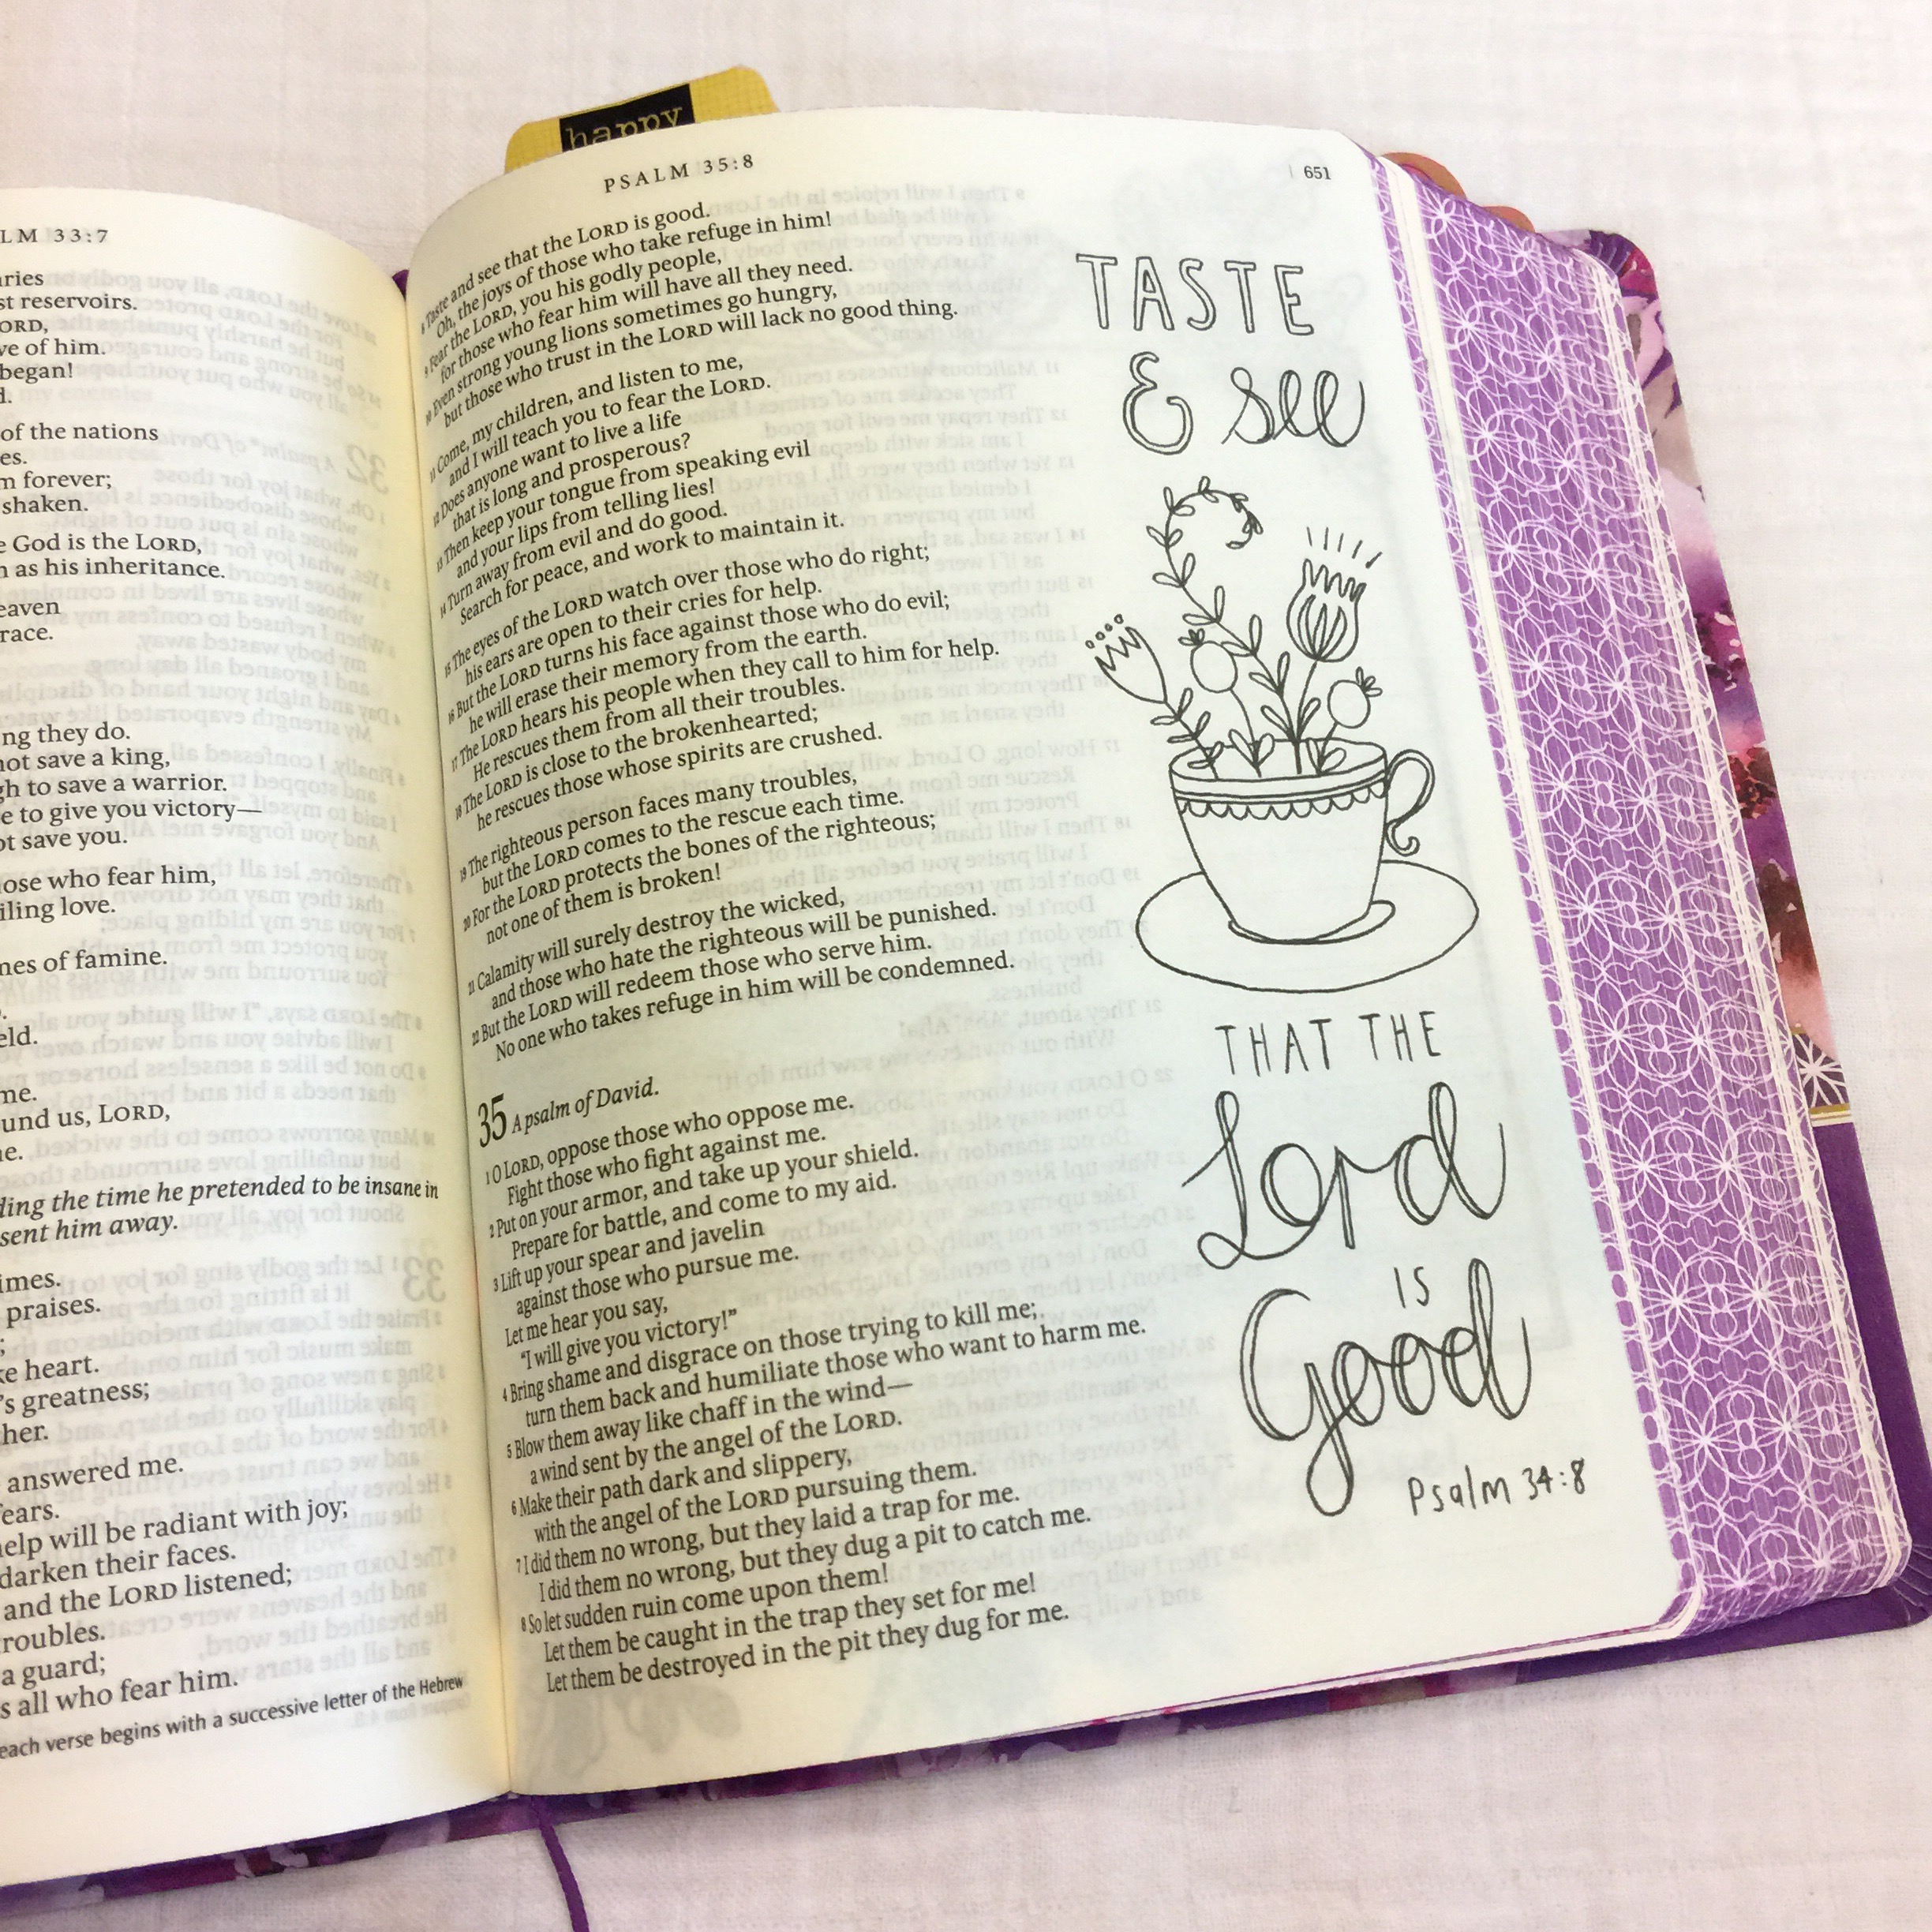 happy
LM 33:7
ries
st reservoirs.
ORD,
ve of him.
began!
d.
of the nations
es.
m forever;
shaken.
e God is the LORD,
n as his inheritance.
eaven
race.
ng they do.
not save a king,
gh to save a warrior.
e to give you victory—
ot save you.
ose who fear him,
iling love.
nes of famine.
eld.
me.
und us, LORD,
e.
ding the time he pretended to be insane in
sent him away.
imes.
praises.
;
ke heart.
's greatness;
her.
answered me.
ears.
help will be radiant with joy;
darken their faces.
and the LORD listened;
roubles.
a guard;
s all who fear him.
each verse begins with a successive letter of the Hebrew
PSALM 35:8
651
8 Taste and see that the LORD is good.
Oh, the joys of those who take refuge in him!
9 Fear the LORD, you his godly people,
for those who fear him will have all they need.
10 Even strong young lions sometimes go hungry,
but those who trust in the LORD will lack no good thing.
11 Come, my children, and listen to me,
and I will teach you to fear the LORD.
12 Does anyone want to live a life
that is long and prosperous?
13 Then keep your tongue from speaking evil
and your lips from telling lies!
14 Turn away from evil and do good.
Search for peace, and work to maintain it.
15 The eyes of the LORD watch over those who do right;
his ears are open to their cries for help.
16 But the LORD turns his face against those who do evil;
he will erase their memory from the earth.
17 The LORD hears his people when they call to him for help.
He rescues them from all their troubles.
18 The LORD is close to the brokenhearted;
he rescues those whose spirits are crushed.
19 The righteous person faces many troubles,
but the LORD comes to the rescue each time.
20 For the LORD protects the bones of the righteous;
not one of them is broken!
21 Calamity will surely destroy the wicked,
and those who hate the righteous will be punished.
22 But the LORD will redeem those who serve him.
No one who takes refuge in him will be condemned.
35 A psalm of David.
1 O LORD, oppose those who oppose me.
Fight those who fight against me.
2 Put on your armor, and take up your shield.
Prepare for battle, and come to my aid.
3 Lift up your spear and javelin
against those who pursue me.
Let me hear you say,
“I will give you victory!”
4 Bring shame and disgrace on those trying to kill me;
turn them back and humiliate those who want to harm me.
5 Blow them away like chaff in the wind—
a wind sent by the angel of the LORD.
6 Make their path dark and slippery,
with the angel of the LORD pursuing them.
7 I did them no wrong, but they laid a trap for me.
I did them no wrong, but they dug a pit to catch me.
8 So let sudden ruin come upon them!
Let them be caught in the trap they set for me!
Let them be destroyed in the pit they dug for me.
TASTE
& see
THAT THE
Lord
IS
Good
Psalm 34:8